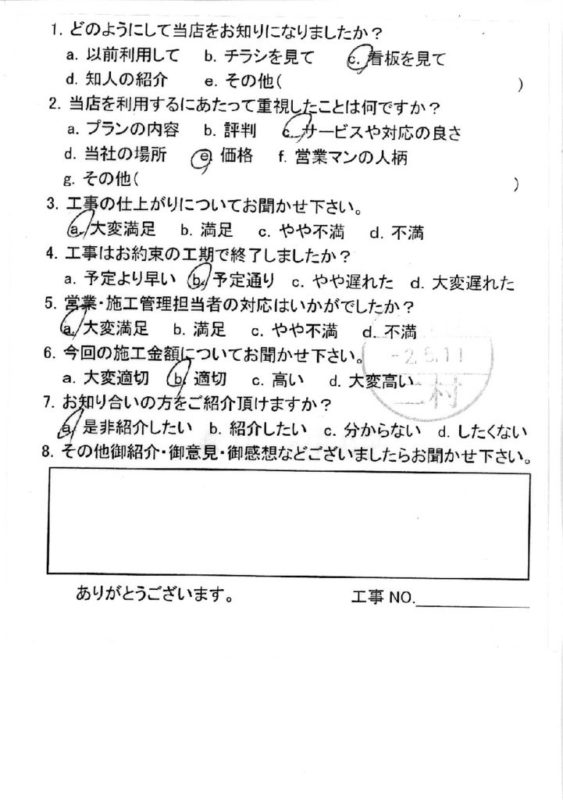 1. どのようにして当店をお知りになりましたか？
a. 以前利用して　b. チラシを見て　c. 看板を見て
d. 知人の紹介　e. その他(　)
2. 当店を利用するにあたって重視したことは何ですか？
a. プランの内容　b. 評判　c. サービスや対応の良さ
d. 当社の場所　e 価格　f. 営業マンの人柄
g. その他(　)
3. 工事の仕上がりについてお聞かせ下さい。
a. 大変満足　b. 満足　c. やや不満　d. 不満
4. 工事はお約束の工期で終了しましたか？
a. 予定より早い　b. 予定通り　c. やや遅れた　d. 大変遅れた
5. 営業・施工管理担当者の対応はいかがでしたか？
a. 大変満足　b. 満足　c. やや不満　d. 不満
6. 今回の施工金額についてお聞かせ下さい。
a. 大変適切　b. 適切　c. 高い　d. 大変高い
7. お知り合いの方をご紹介頂けますか？
a. 是非紹介したい　b. 紹介したい　c. 分からない　d. したくない
8. その他御紹介・御意見・御感想などございましたらお聞かせ下さい。
ありがとうございます。　工事 NO.